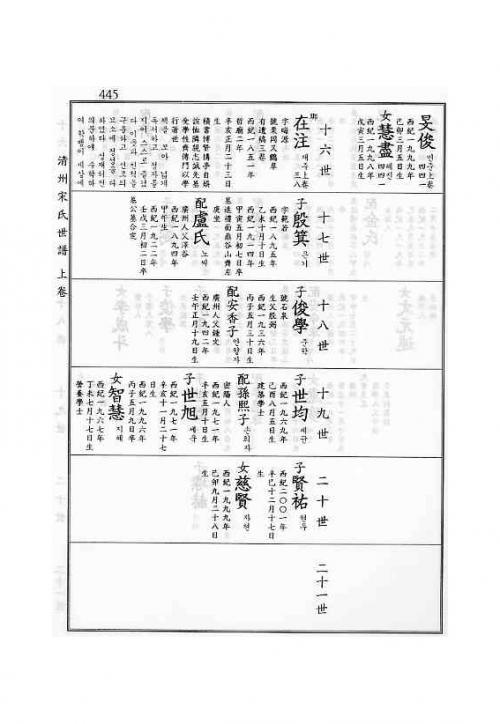 445
清州宋氏世譜 上卷
旻俊 민준
西紀一九九九年
己卯三月五日生
女慧盡 혜진
西紀一九九八年
戊寅三月五日生
十六世
在注 재주
字暘源
號栗岡又鶴阜
有遺稿三卷
西紀一八五一年
哲廟二年
生
辛亥正月二十三日
行著世
十七世
子殷箕 은기
字範若
西紀一八九五年
乙未十月十日生
西紀一九一四年
甲寅五月初七日卒
庚坐
配盧氏 노씨
廣州人父澤谷
西紀一八九四年
甲午生
西紀一九二二年
壬戌三月初二日卒
墓公墓合窆
十八世
子俊學 준학
號石泉
生父殷弼
西紀一九三六年
丙子五月三十日生
配安香子 안향자
廣州人父鍾文
西紀一九四二年
壬午正月十九日生
十九世
子世均 세균
西紀一九六九年
己酉八月五日生
建築學士
配孫熙子 손희자
密陽人
西紀一九七一年
辛亥五月十日生
子世旭 세욱
西紀一九七一年
辛亥十一月二十七
日生
西紀一九九六年
丙子五月九日卒
女智慧 지혜
西紀一九六七年
丁未七月十七日生
營養學士
二十世
子賢祐 현우
西紀二〇〇一年
辛巳十二月十七日
生
女慈賢 자현
西紀一九九九年
己卯九月二十八日
生
二十一世